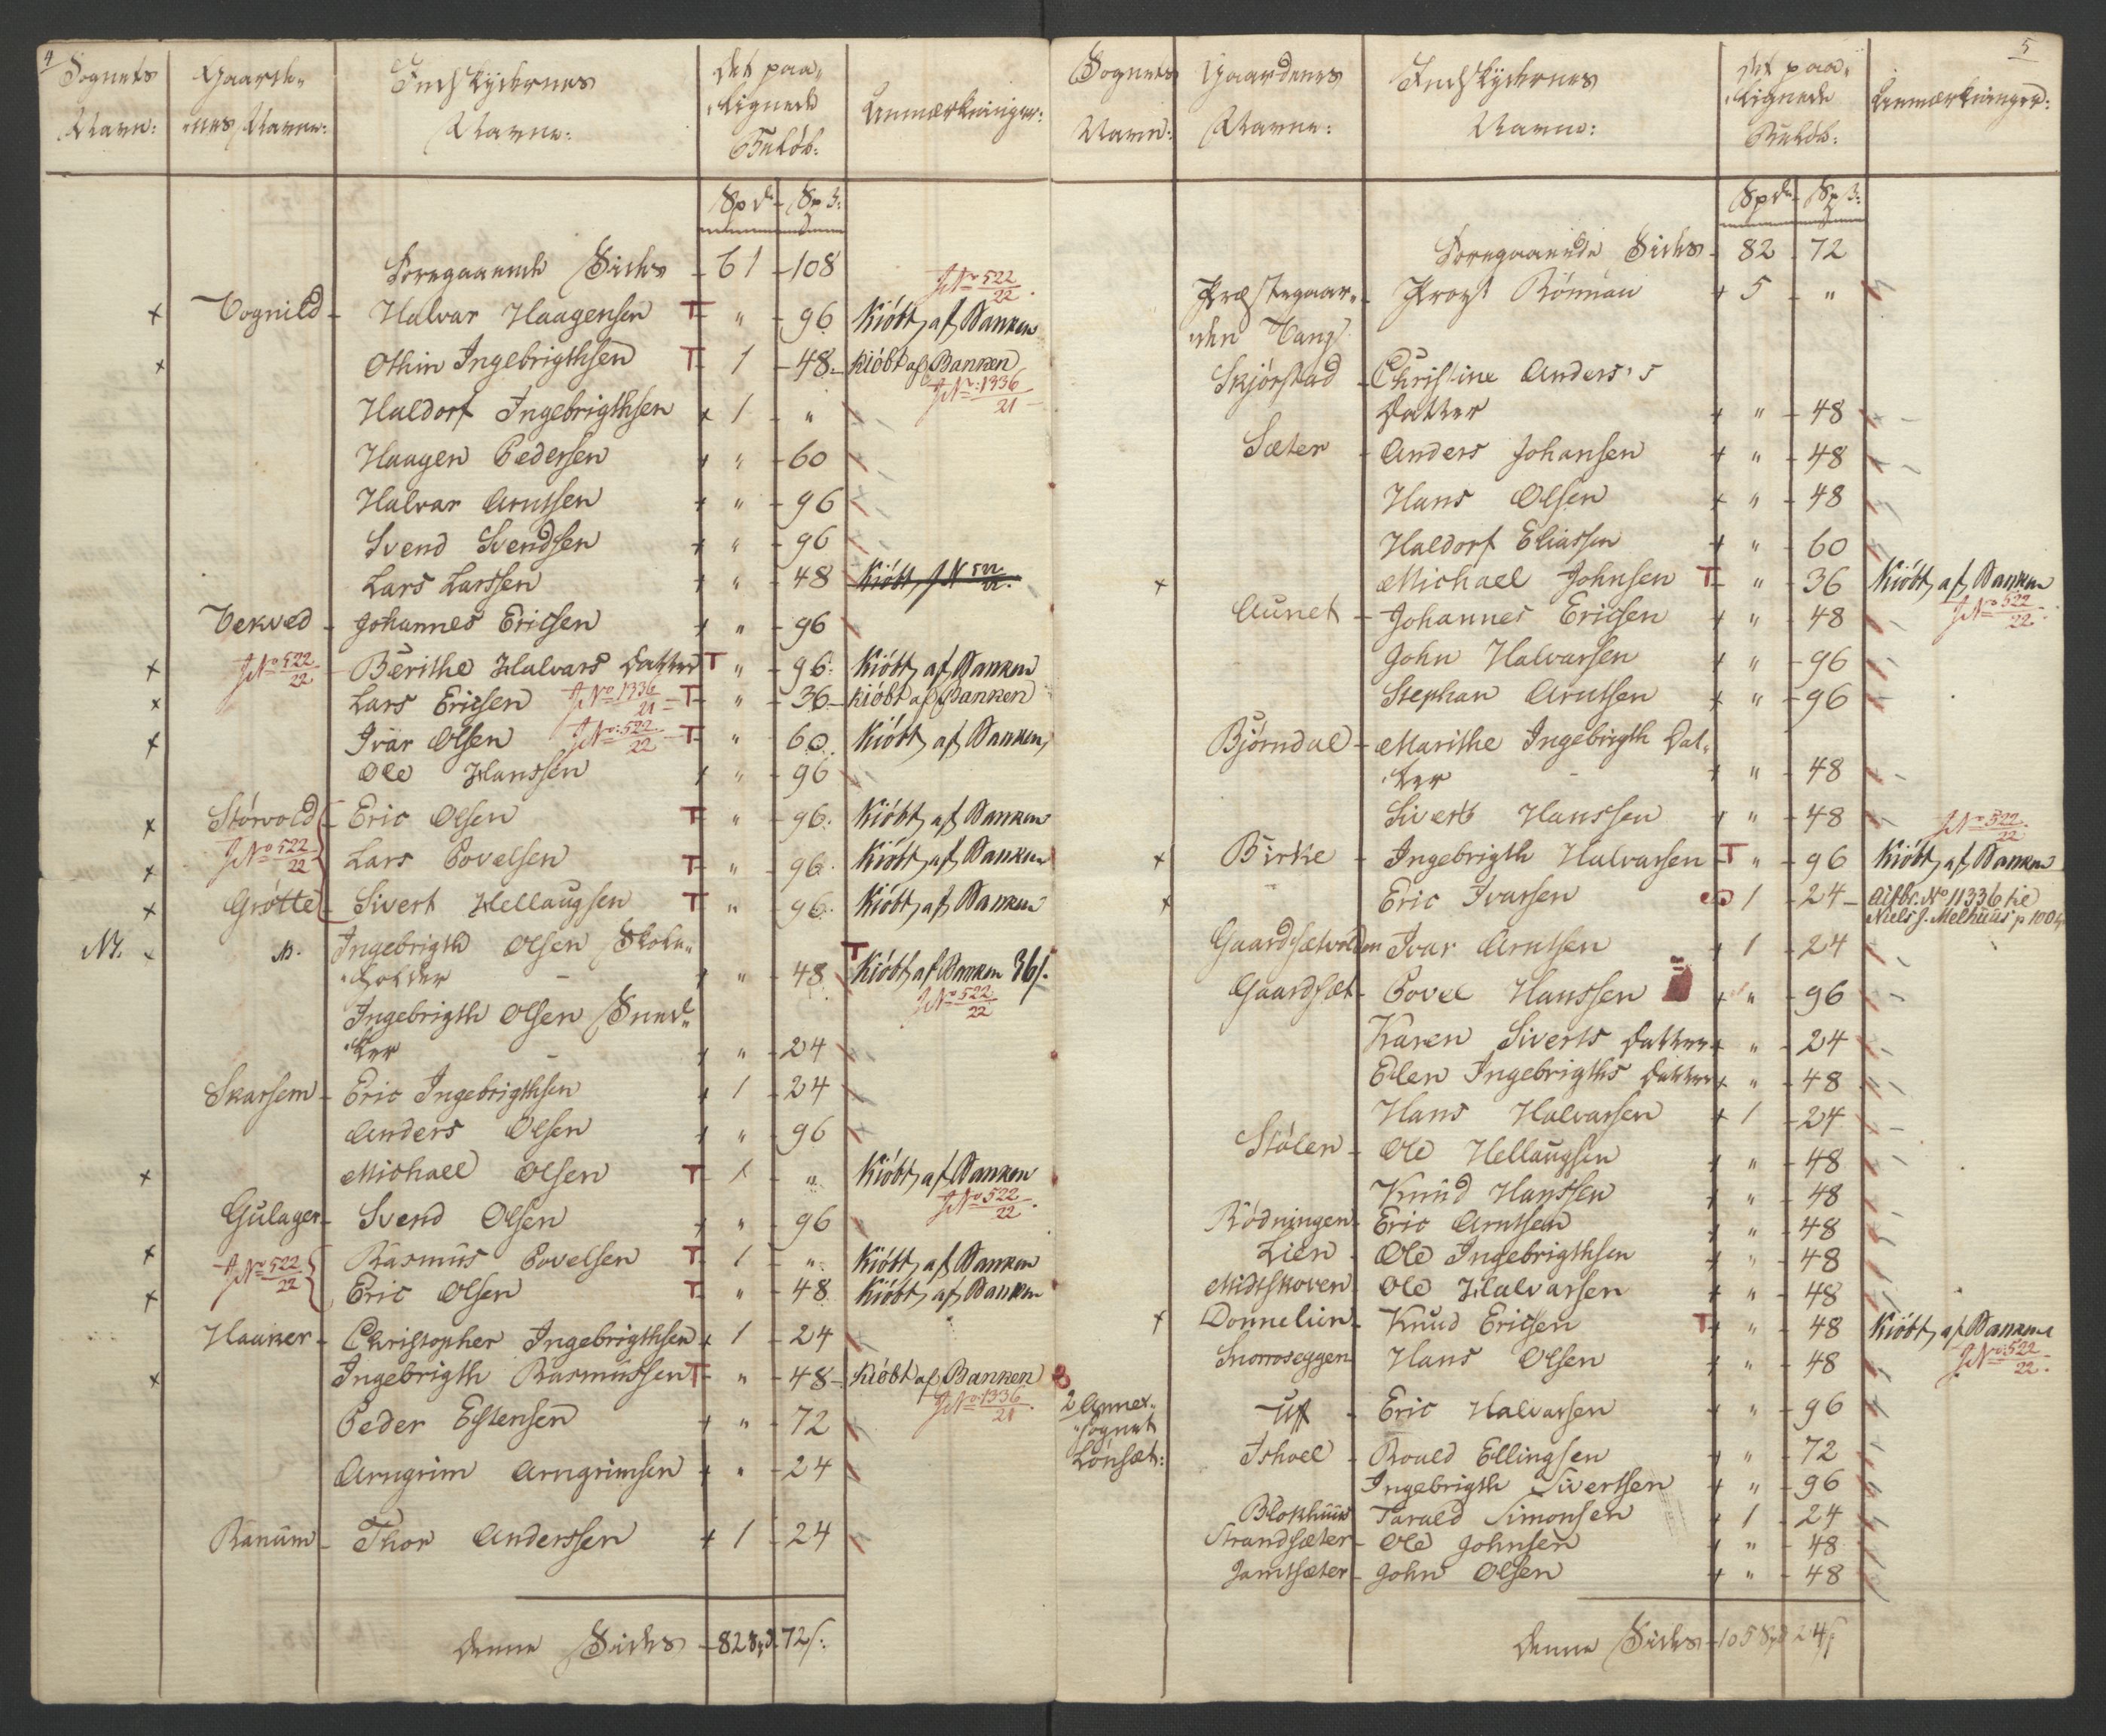 4
Sognets Navn:
Gaarde-nes Navne:
Indskydernes Navne:
Det paa-lignede Beløb:
Anmærkninger:
Spd. Sp ß:
Foregaaende Side 61 - 108
J No 522/22
+ Vognild - Halvar Haagensen T " - 96 Kiöbt af Banken
+ Othin Ingebrigthsen T 1 - 48 - kiöbt af Banken
J No: 1336/21
Haldorf Ingebrigthsen + 1 - "
Haagen Pedersen + " - 60
Halvar Arntsen + " - 96
Svend Svendsen + " - 96
Lars Larssen + " - 48 Kiöbt J N 522/22.
Vekved - Johannes Ericsen + " - 96
+ J No 522/22 - Berithe Halvars Datter T " - 96. Kiöbt af Banken
+ Lars Ericsen J No 1336/21 - T " - 36 - kiöbt af Banken
+ Ivar Olsen J No: 522/22 - T " - 60. Kiöbt af Banken
Ole Hanssen + " - 96
+ Störvold - Eric Olsen T " - 96. Kiöbt af Banken
+ J No 522/22 Lars Povelsen T " - 96. Kiöbt af Banken
+ Grötte - Sivert Hellaugsen T " - 96. Kiöbt af Banken
Ingebrigth Olsen Skole-
holder - + " - 48 T Kiöbt af Banken 36 ß.
J No 522/22
Ingebrigth Olsen Sned-
ker - + " - 24
Skarsem - Eric Ingebrigthsen + 1 - 24
Anders Olsen + " - 96
+ Michael Olsen T 1 - " Kiöbt af Banken
J No 522/22.
Gulager - Svend Olsen + " - 96
+ J No 522/22 Rasmus Povelsen T 1 - " Kiöbt af Banken
+ Eric Olsen T " - 48 Kiöbt af Banken
Haaker - Christopher Ingebrigthsen + 1 - 24
+ Ingebrigth Rasmussen T " - 48 - kiöbt af Banken
J No: 1336/21.
Peder Estensen + " - 72
Arngrim Arngrimsen + " - 24
Ranum - Thor Anderssen + 1 - 24
Denne Side - 82 Spd. 72 ß:
5
Sognets Navn:
Gaardenes Navne:
Indskydernes Navne:
Det paa-lignede Beløb:
Anmærkninger:
Spd. Sp ß:
Foregaaende Side - 82 - 72
Præstegaar- - Provst Rönnau + 5 - "
den Vang
Skjörstad - Christine Anders's
Datter + " - 48
Sæter - Anders Johansen + " - 48
Hans Olsen + " - 48
Haldorf Eliassen + " - 60
+ Michael Johnsen T " - 36 Kiöbt af Banken
Aunet - Johannes Ericsen + " - 48 J No 522/22.
John Halvarsen + " - 96
Stephan Arntsen + " - 96
Bjørndal - Marithe Ingebrigth Dat-
ter - + " - 48
Sivert Hanssen + " - 48
J No 522/22
+ Birke - Ingebrigth Halvarsen T " - 96 Kiöbt af Banken
+ Eric Ivarsen 1 - 24 - Afbr. No 11336 til
Niels J. Melhuus p 100
Gaardsætvolden Ivar Arntsen + 1 - 24
Gaardsæt - Povel Hanssen + " - 96
Karen Siverts Datter + " - 24
Ellen Ingebrigths Datter + " - 48
Hans Halvarsen + 1 - 24
Stölen - Ole Hellaugsen + " - 48
Knud Hanssen + " - 48
Rödningen - Eric Arntsen + " - 48
Lien - Ole Ingebrigthsen + " - 48
Midtskoven - Ole Halvarsen + " - 48
+ Donnelien - Knud Ericsen T " - 48 Kiöbt af Banken
Snorroseggen Hans Olsen + " - 48 J No: 522/22.
2 Annex-
sognet
Lönsæt:
Uff - Eric Halvarsen + " - 96
Ishoel - Roald Ellingsen + " - 72
Ingebrigth Sivertsen + " - 96
Blokhuus - Tarald Simonsen + 1 - 24
Strandsæter - Ole Johnsen + " - 48
Jamtsæter - John Olsen + " - 48
Denne Side - 105 Spd 24 ß